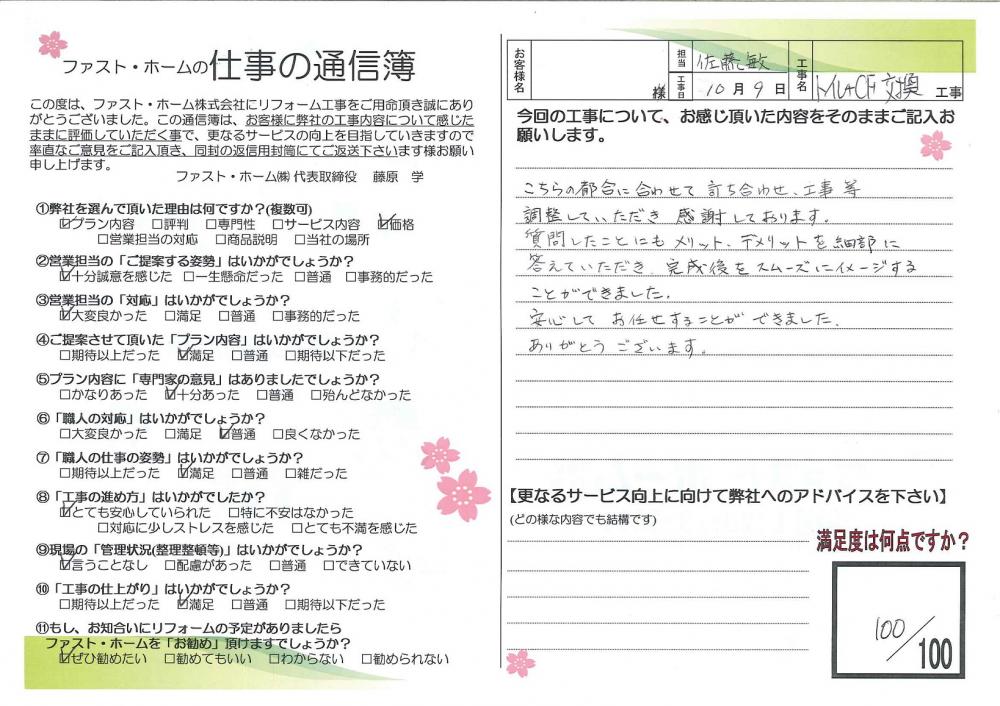 ファスト・ホームの仕事の通信簿
この度は、ファスト・ホーム株式会社にリフォーム工事をご用命頂き誠にあり
がとうございました。この通信簿は、お客様に弊社の工事内容について感じた
ままに評価していただく事で、更なるサービスの向上を目指していきますので
率直なご意見をご記入頂き、同封の返信用封筒にてご返送下さいます様お願い
申し上げます。
ファスト・ホーム㈱ 代表取締役 藤原 学
①弊社を選んで頂いた理由は何ですか?(複数可)
☑プラン内容 □評判 □専門性 □サービス内容 ☑価格
□営業担当の対応 □商品説明 □当社の場所
②営業担当の「ご提案する姿勢」はいかがでしょうか?
☑十分誠意を感じた □一生懸命だった □普通 □事務的だった
③営業担当の「対応」はいかがでしょうか?
☑大変良かった □満足 □普通 □事務的だった
④ご提案させて頂いた「プラン内容」はいかがでしょうか?
□期待以上だった ☑満足 □普通 □期待以下だった
⑤プラン内容に「専門家の意見」はありましたでしょうか?
□かなりあった ☑十分あった □普通 □殆んどなかった
⑥「職人の対応」はいかがでしょうか?
□大変良かった □満足 ☑普通 □良くなかった
⑦「職人の仕事の姿勢」はいかがでしょうか?
□期待以上だった ☑満足 □普通 □雑だった
⑧「工事の進め方」はいかがでしたか?
☑とても安心していられた □特に不安はなかった
□対応に少しストレスを感じた □とても不満を感じた
⑨現場の「管理状況(整理整頓等)」はいかがでしょうか?
☑言うことなし □配慮があった □普通 □できていない
⑩「工事の仕上がり」はいかがでしょうか?
□期待以上だった ☑満足 □普通 □期待以下だった
⑪もし、お知合いにリフォームの予定がありましたら
ファスト・ホームを「お勧め」頂けますでしょうか?
☑ぜひ勧めたい □勧めてもいい □わからない □勧められない
お客様名 様 担当 佐藤敏 工事日 10月9日 工事名 トイレ+CF交換 工事
今回の工事について、お感じ頂いた内容をそのままご記入お
願いします。
こちらの都合に合わせて 打ち合わせ、工事 等
調整していただき 感謝しております。
質問したことにも メリット、デメリットを細部に
答えていただき 完成後をスムーズにイメージする
ことができました。
安心して お任せすることが できました。
ありがとう ございます。
【更なるサービス向上に向けて弊社へのアドバイスを下さい】
(どの様な内容でも結構です)
満足度は何点ですか?
100/100